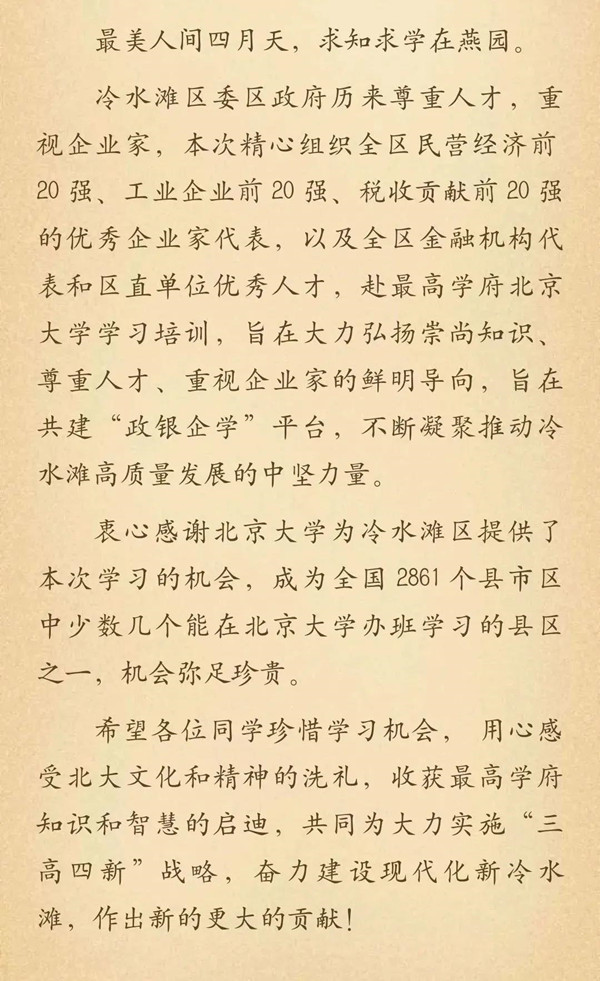 最美人间四月天，求知求学在燕园。
冷水滩区委区政府历来尊重人才，重
视企业家，本次精心组织全区民营经济前
20强、工业企业前20强、税收贡献前20强
的优秀企业家代表，以及全区金融机构代
表和区直单位优秀人才，赴最高学府北京
大学学习培训，旨在大力弘扬崇尚知识、
尊重人才、重视企业家的鲜明导向，旨在
共建“政银企学”平台，不断凝聚推动冷
水滩高质量发展的中坚力量。
衷心感谢北京大学为冷水滩区提供了
本次学习的机会，成为全国2861个县市区
中少数几个能在北京大学办班学习的县区
之一，机会弥足珍贵。
希望各位同学珍惜学习机会， 用心感
受北大文化和精神的洗礼，收获最高学府
知识和智慧的启迪，共同为大力实施“三
高四新”战略，奋力建设现代化新冷水
滩，作出新的更大的贡献！